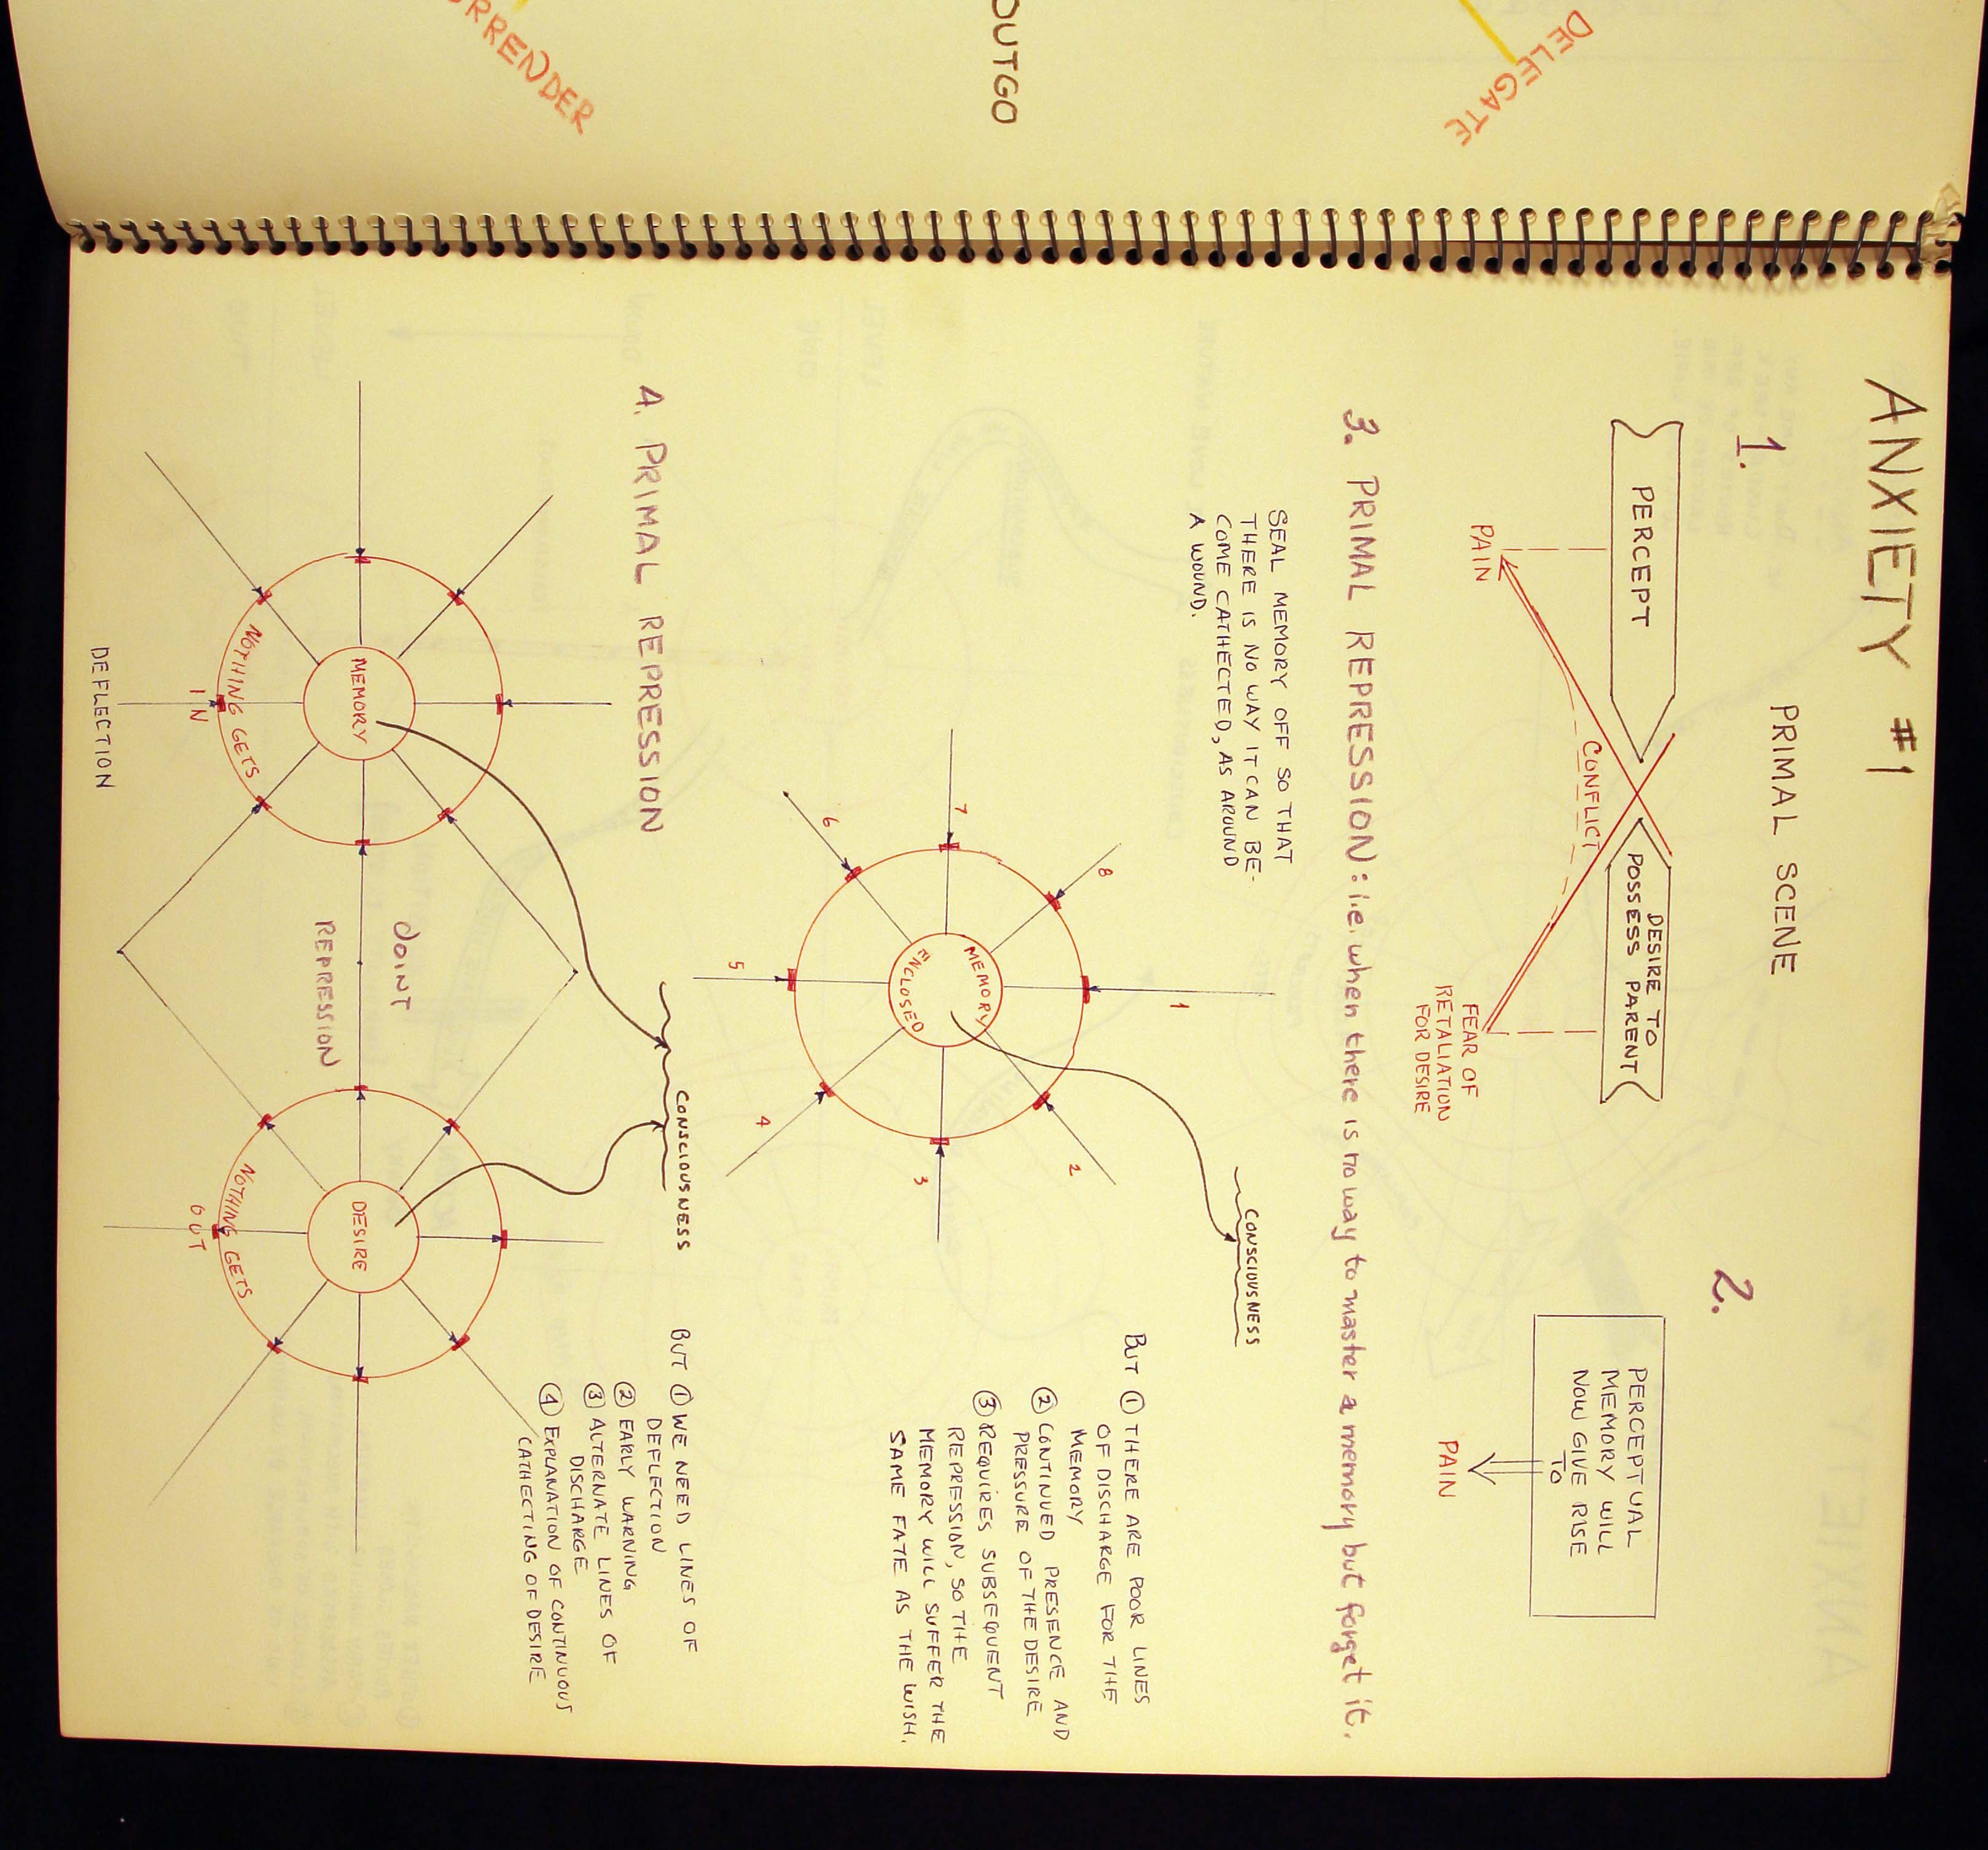 OUTGO
DELEGATE
ANXIETY #1
1.
PRIMAL SCENE
PERCEPT
DESIRE TO
POSSESS PARENT
CONFLICT
PAIN
FEAR OF
RETALIATION
FOR DESIRE
2.
PERCEPTUAL
MEMORY WILL
NOW GIVE RISE
TO
PAIN
3. PRIMAL REPRESSION: i.e. when there is no way to master a memory but forget it.
SEAL MEMORY OFF SO THAT
THERE IS NO WAY IT CAN BE-
COME CATHECTED, AS AROUND
A WOUND.
CONSCIOUSNESS
MEMORY
ENCLOSED
1
2
3
4
5
6
7
8
BUT ① THERE ARE POOR LINES
OF DISCHARGE FOR THE
MEMORY
② CONTINUED PRESENCE AND
PRESSURE OF THE DESIRE
③ REQUIRES SUBSEQUENT
REPRESSION, SO THE
MEMORY WILL SUFFER THE
SAME FATE AS THE WISH.
4. PRIMAL REPRESSION
CONSCIOUSNESS
MEMORY
NOTHING GETS
IN
DEFLECTION
JOINT
REPRESSION
DESIRE
NOTHING GETS
OUT
BUT ① WE NEED LINES OF
DEFLECTION
② EARLY WARNING
③ ALTERNATE LINES OF
DISCHARGE
④ EXPLANATION OF CONTINUOUS
CATHECTING OF DESIRE